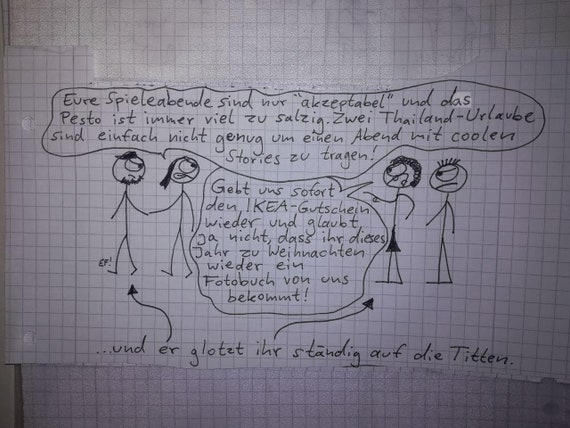 Eure Spieleabende sind nur "akzeptabel" und das
Pesto ist immer viel zu salzig. Zwei Thailand-Urlaube
sind einfach nicht genug um einen Abend mit coolen
Stories zu tragen!
Gebt uns sofort
den IKEA-Gutschein
wieder und glaubt
ja nicht, dass ihr dieses
Jahr zu Weihnachten
wieder ein
Fotobuch von uns
bekommt!
EF!
...und er glotzt ihr ständig auf die Titten.